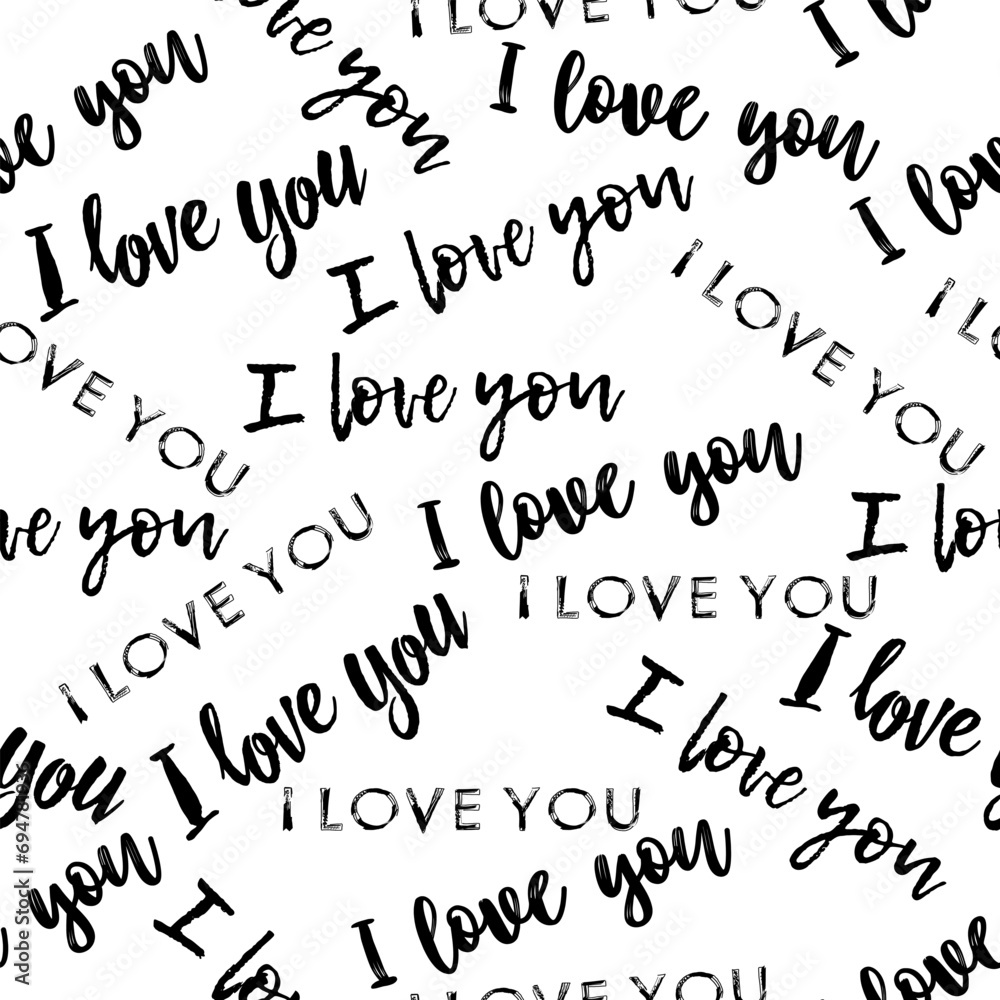 I LOVE YOU
love you
I lo
ove you
I love you
I love
I love you
I love you
I LOVE YOU
I L
OVE YOU
I love you
I love you
I lo
ve you
I LOVE YOU
I LOVE YOU
I love you
I love
I love you
you
I LOVE YOU
I love you
you
I lo
love
I LOVE YOU
Adobe Stock | #694784036